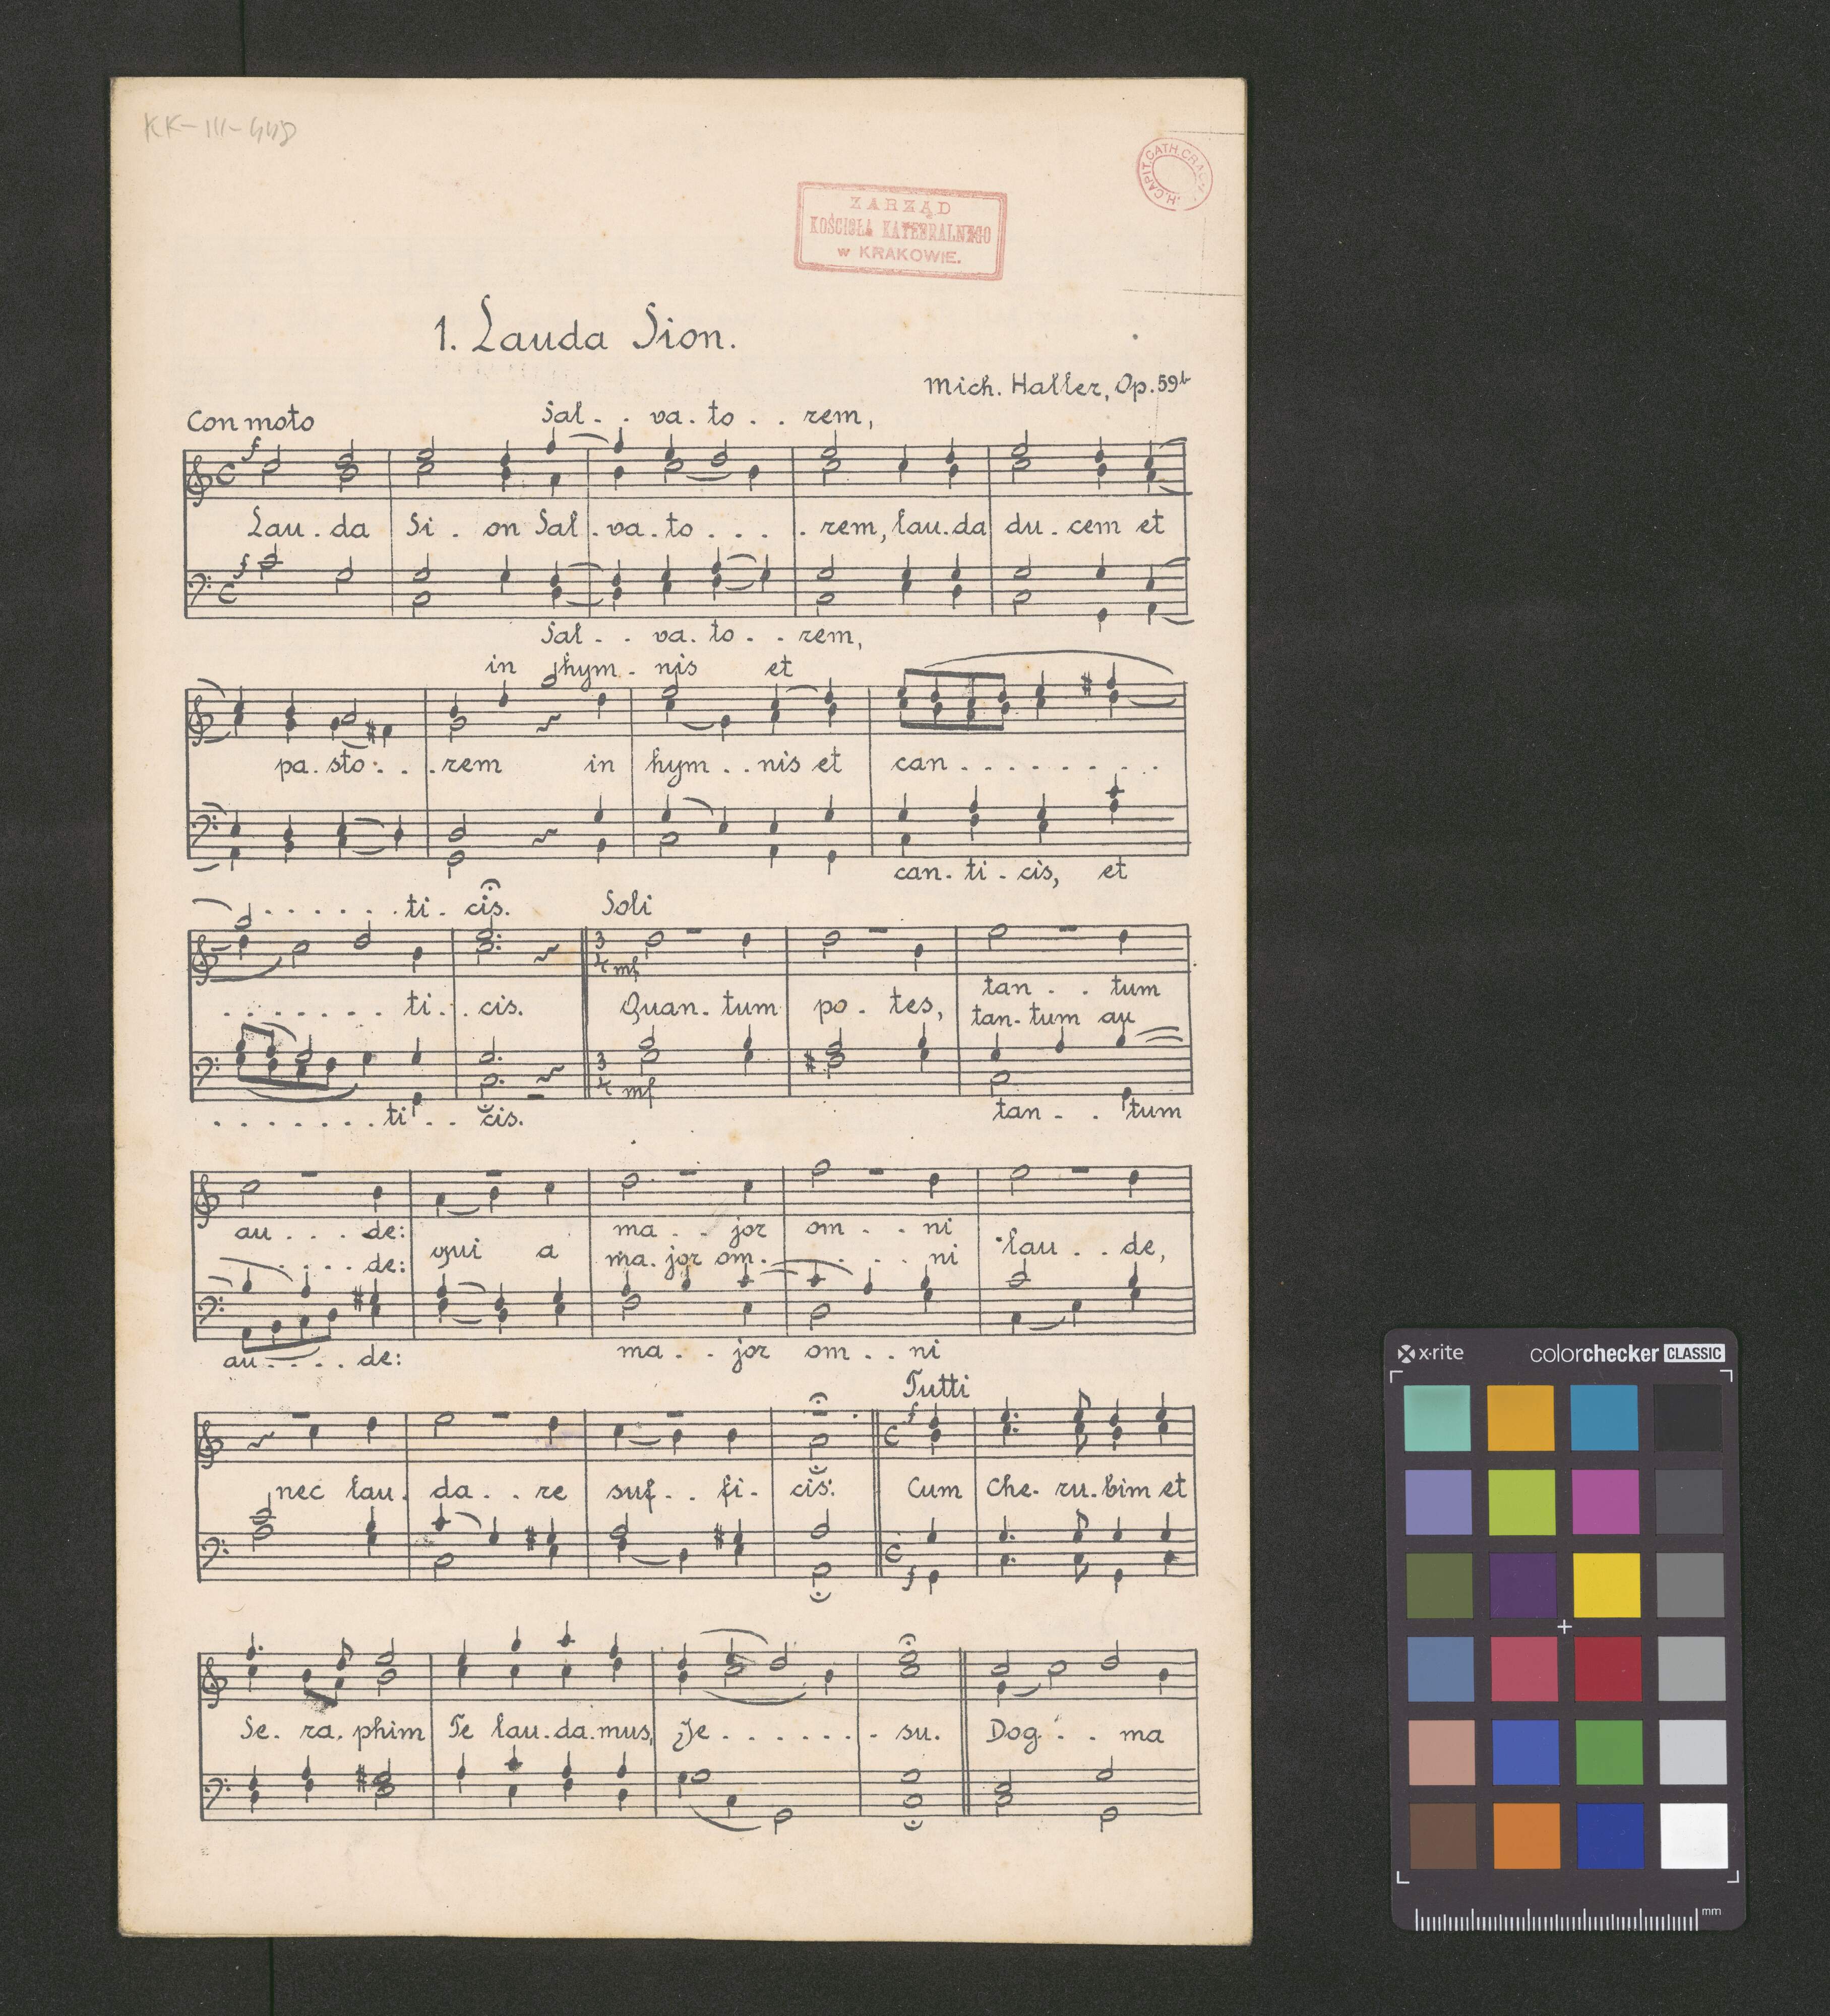 KK-III-448
H. CAPIT. CATH. CRAC.
ZARZĄD
KOŚCIOŁA KATEDRALNEGO
w KRAKOWIE.
1. Lauda Sion.
Mich. Haller, Op. 59b
Con moto
Sal . . va . to . . rem,
f
Lau . da Si . on Sal . va . to . . . . rem, lau . da du . cem et
f
Sal . . va . to . . rem,
in hym . nis et
pa . sto . . . rem in hym . . nis et can . . . . . . . .
can . ti . cis, et
. . . . . . ti . cis. Soli
3 4 mf
tan . . tum
. . . . . . . ti . . cis. Quan . tum po . tes, tan . tum au
3 4 mf
. . . . . . . ti . . cis. tan . . tum
au . . . de: ma . . jor om . . ni
. . . . de: qui a ma . jor om . . . . ni lau . . de,
au . . . . de: ma . . jor om . . ni
Tutti
f
nec lau . da . . re suf . . fi . cis: Cum Che . ru . bim et
f
Se . ra . phim Te lau . da . mus, Je . . . . . . . su. Dog . . ma
x·rite colorchecker CLASSIC
mm